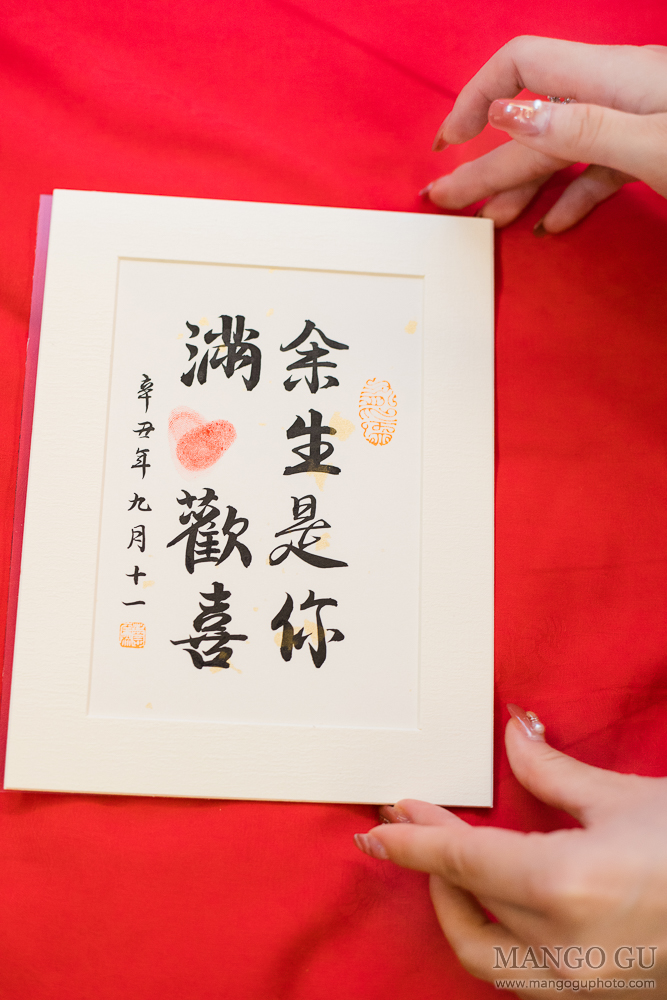 余生是你
滿歡喜
辛丑年九月十一
MANGO GU
www.mangoguphoto.com